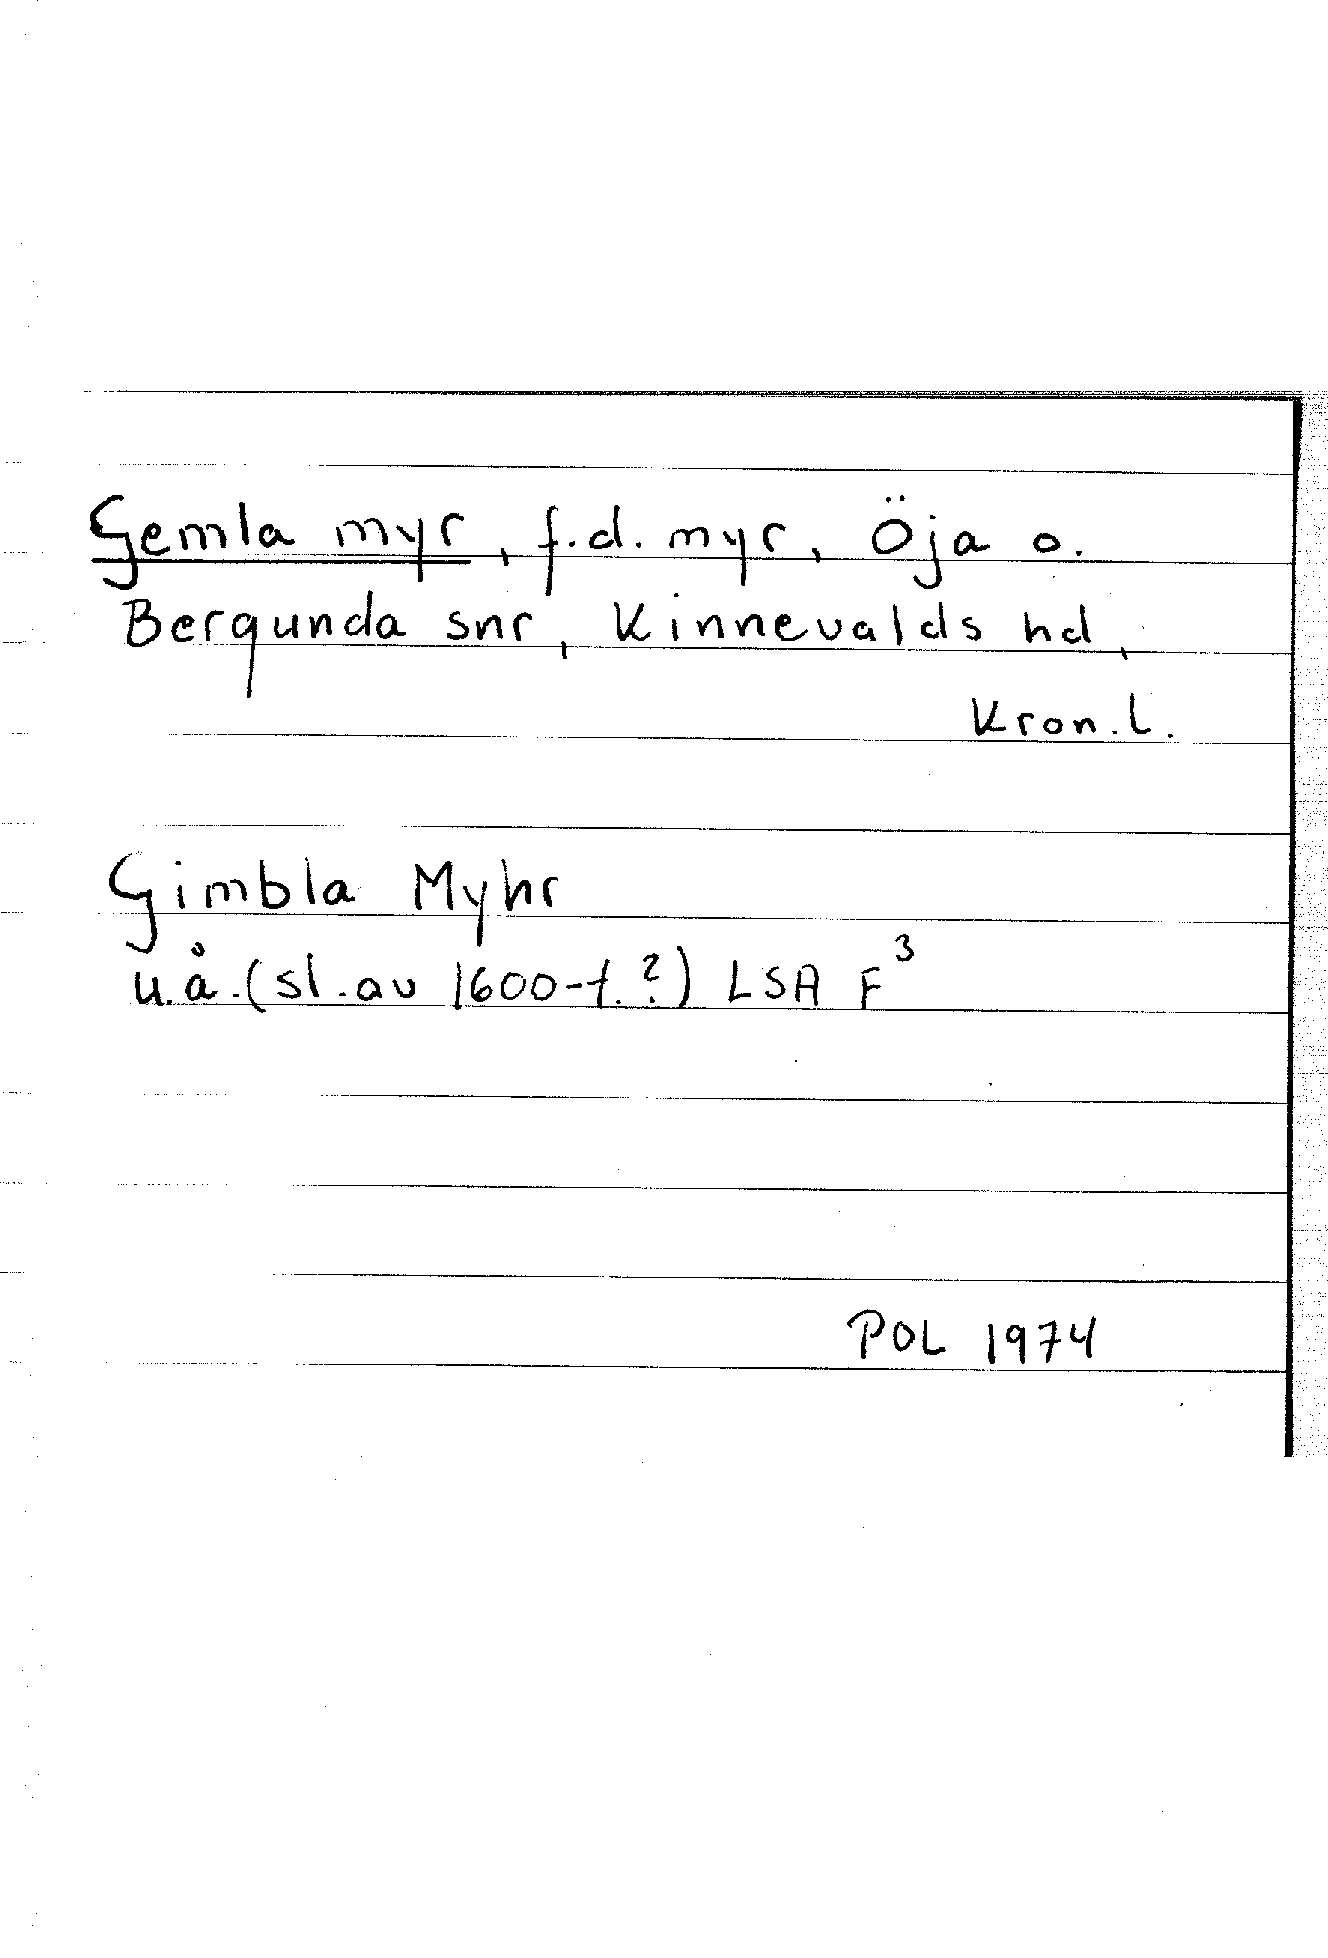 Gemla myr, f.d. myr, Öja o.
Bergunda snr, Kinnevalds hd,
Kron.l.
Gimbla Myhr
u.å. (sl. av 1600-t.?) LSA F³
POL 1974